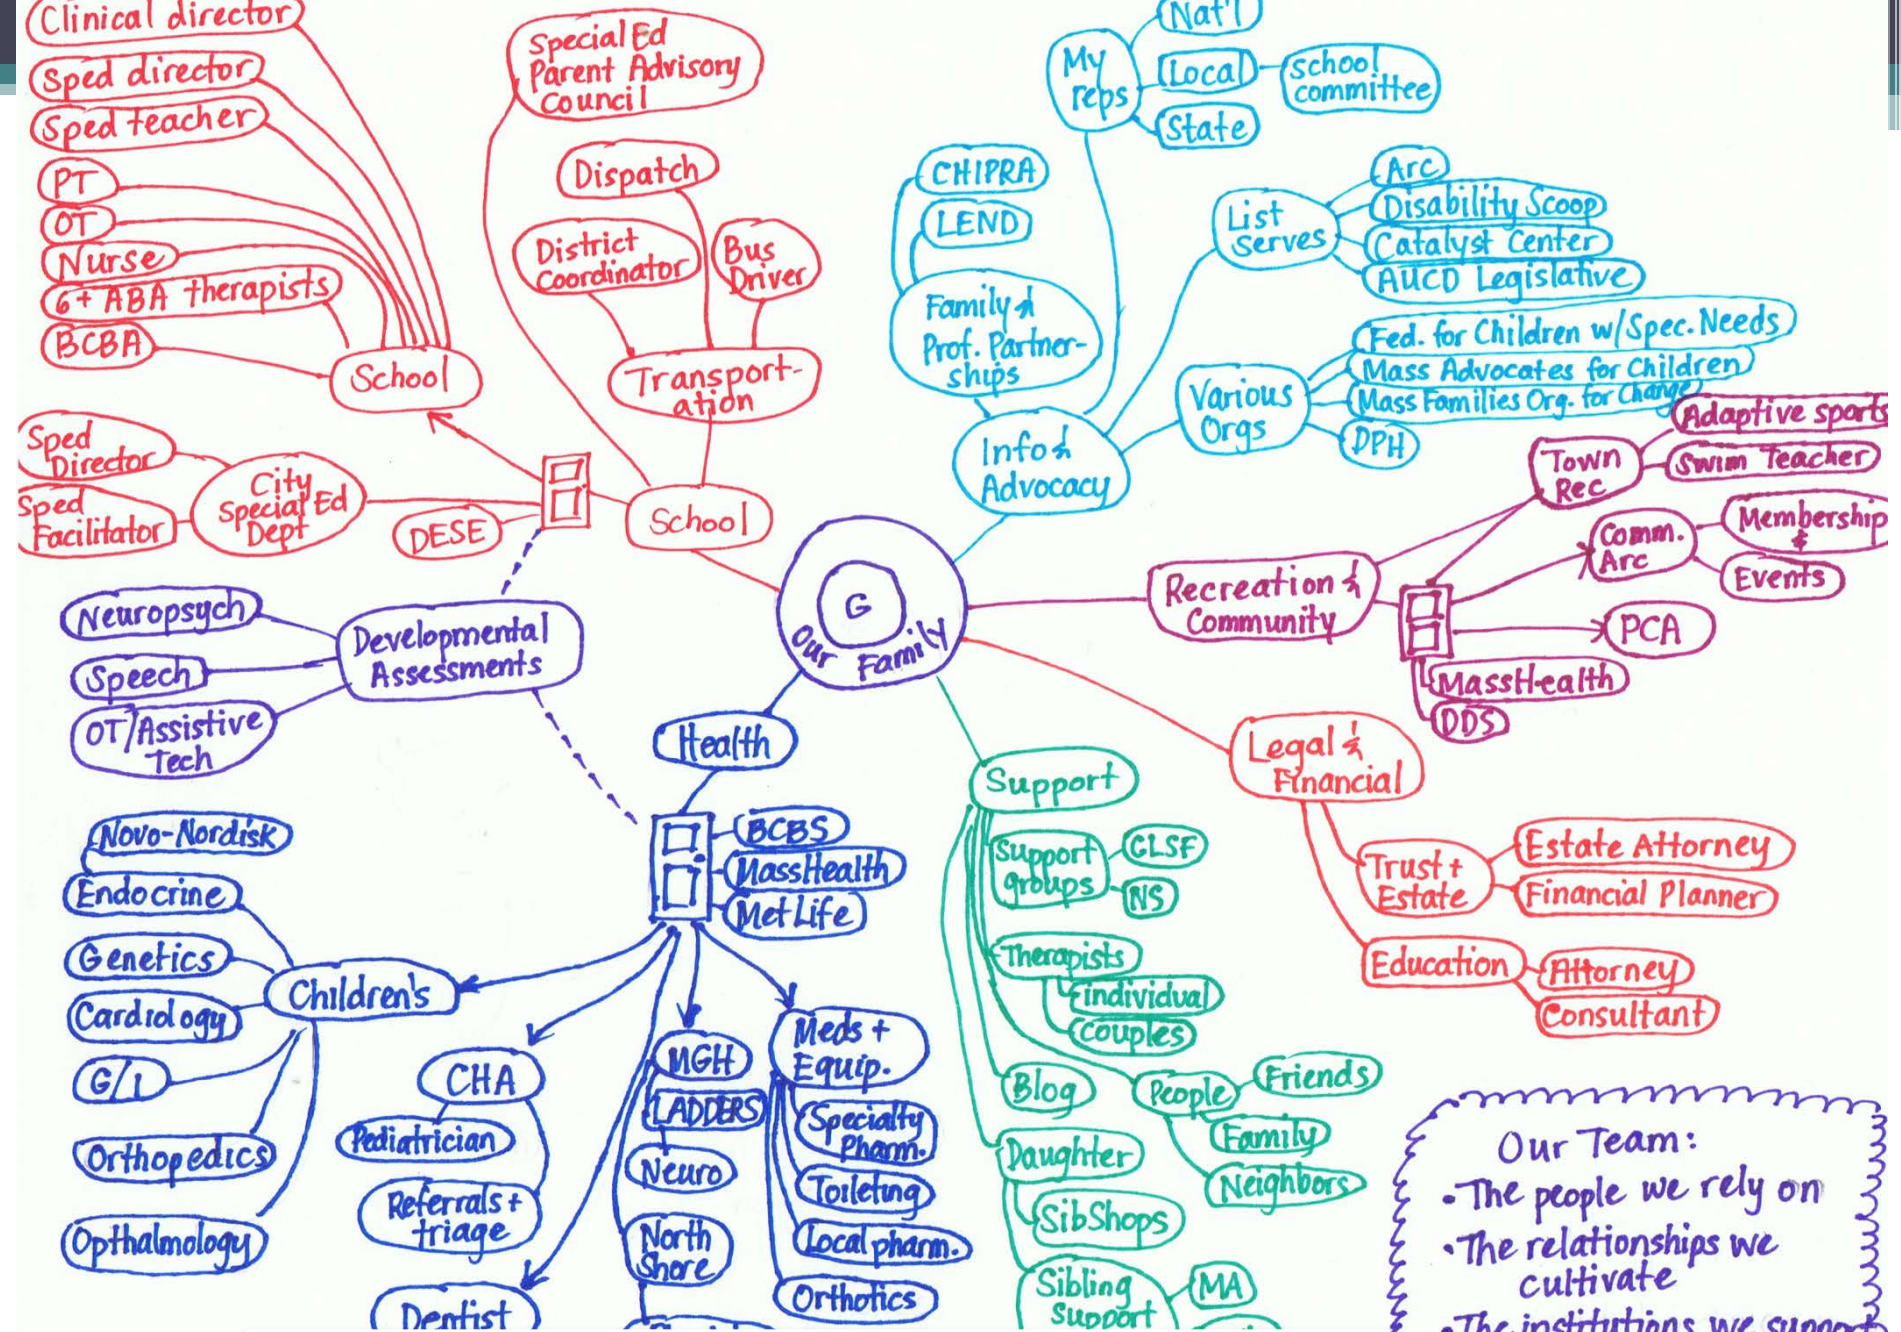 Clinical director
Sped director
Sped teacher
PT
OT
Nurse
6+ ABA therapists
BCBA
School
Special Ed
Parent Advisory
Council
Dispatch
District
Coordinator
Bus
Driver
Transport-
ation
Sped
Director
Sped
Facilitator
City
Special Ed
Dept
DESE
School
My
reps
Nat'l
Local
school
committee
State
CHIPRA
LEND
Family &
Prof. Partner-
ships
List
Serves
Arc
Disability Scoop
Catalyst Center
AUCD Legislative
Various
Orgs
Fed. for Children w/Spec. Needs
Mass Advocates for Children
Mass Families Org. for Change
DPH
Info &
Advocacy
Town
Rec
Adaptive sports
Swim Teacher
Comm.
Arc
Membership
&
Events
Recreation &
Community
PCA
MassHealth
DDS
G
Our Family
Neuropsych
Speech
OT/Assistive
Tech
Developmental
Assessments
Health
BCBS
MassHealth
MetLife
Novo-Nordisk
Endocrine
Genetics
Cardiology
G/I
Orthopedics
Opthalmology
Children's
CHA
Pediatrician
Referrals +
triage
Dentist
MGH
LADDERS
Neuro
North
Shore
Meds +
Equip.
Specialty
Pharm.
Toileting
Local pharm.
Orthotics
Support
Support
groups
CLSF
NS
Therapists
individual
couples
Blog
People
Friends
Family
Neighbors
Daughter
SibShops
Sibling
Support
MA
Legal &
Financial
Trust +
Estate
Estate Attorney
Financial Planner
Education
Attorney
Consultant
Our Team:
• The people we rely on
• The relationships we
cultivate
• The institutions we support